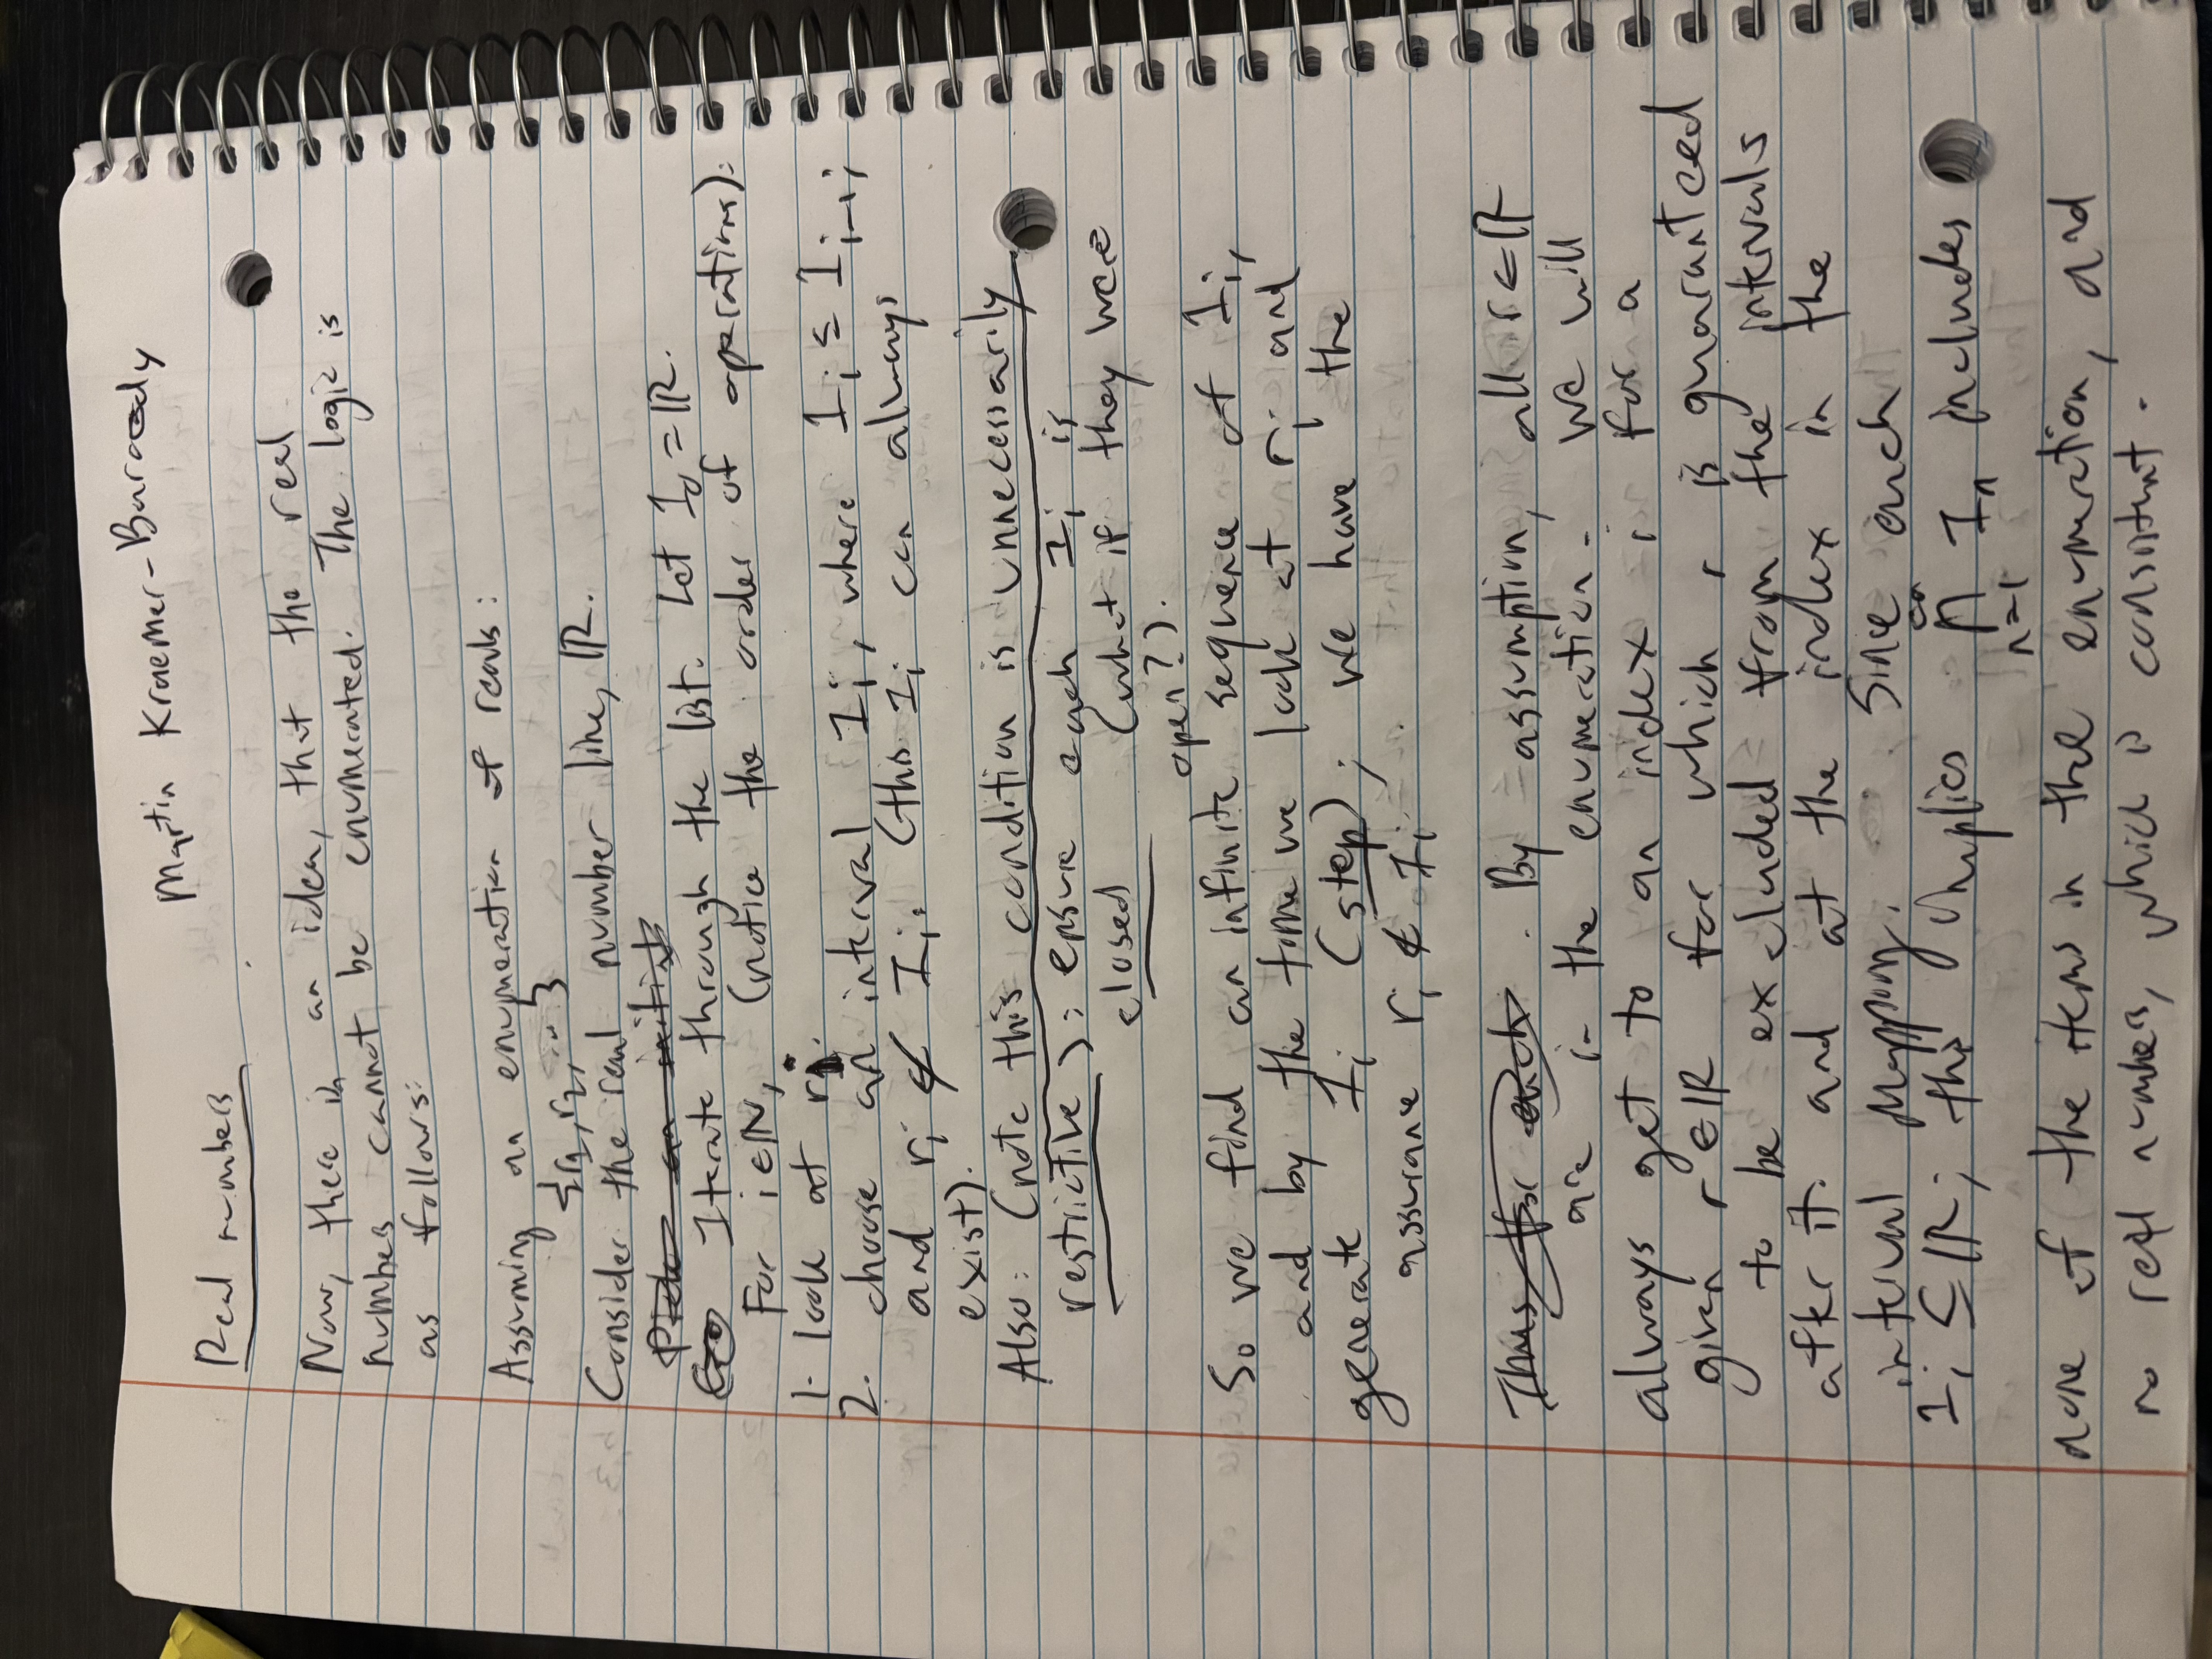 Martin Kraemer-Baroody
Real numbers
Now, there is an idea, that the real
numbers cannot be enumerated. The logic is
as follows:
Assuming an enumeration of reals:
{r1, r2, ...}
Consider the real number line, ℝ.
Iterate through the list. Let I0 = ℝ.
For i∈ℕ, (notice the order of operations):
1. look at ri.
2. choose an interval Ii, where Ii ⊆ Ii-1,
and ri ∉ Ii. (this Ii can always
exist).
Also: (note this condition is unnecessarily
restrictive): ensure each Ii is
closed (what if they were
open?).
So we find an infinite sequence of Ii,
and by the time we look at ri and
generate Ii (step), we have the
assurance ri ∉ Ii.
By assumption, all r∈ℝ
are in the enumeration. We will
always get to an index i for a
given r∈ℝ for which r is guaranteed
to be excluded from the intervals
after it and at the index in the
interval mapping. Since each
Ii ⊆ ℝ, this implies ∞⋂n=1 In includes
none of the items in the enumeration, and
no real numbers, which is consistent.